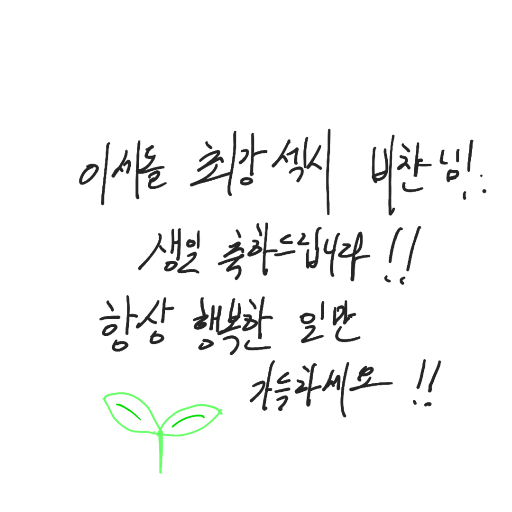 이세돌 최강 섹시 비챤님!!
생일 축하드립니다!!
항상 행복한 일만
가득하세요!!